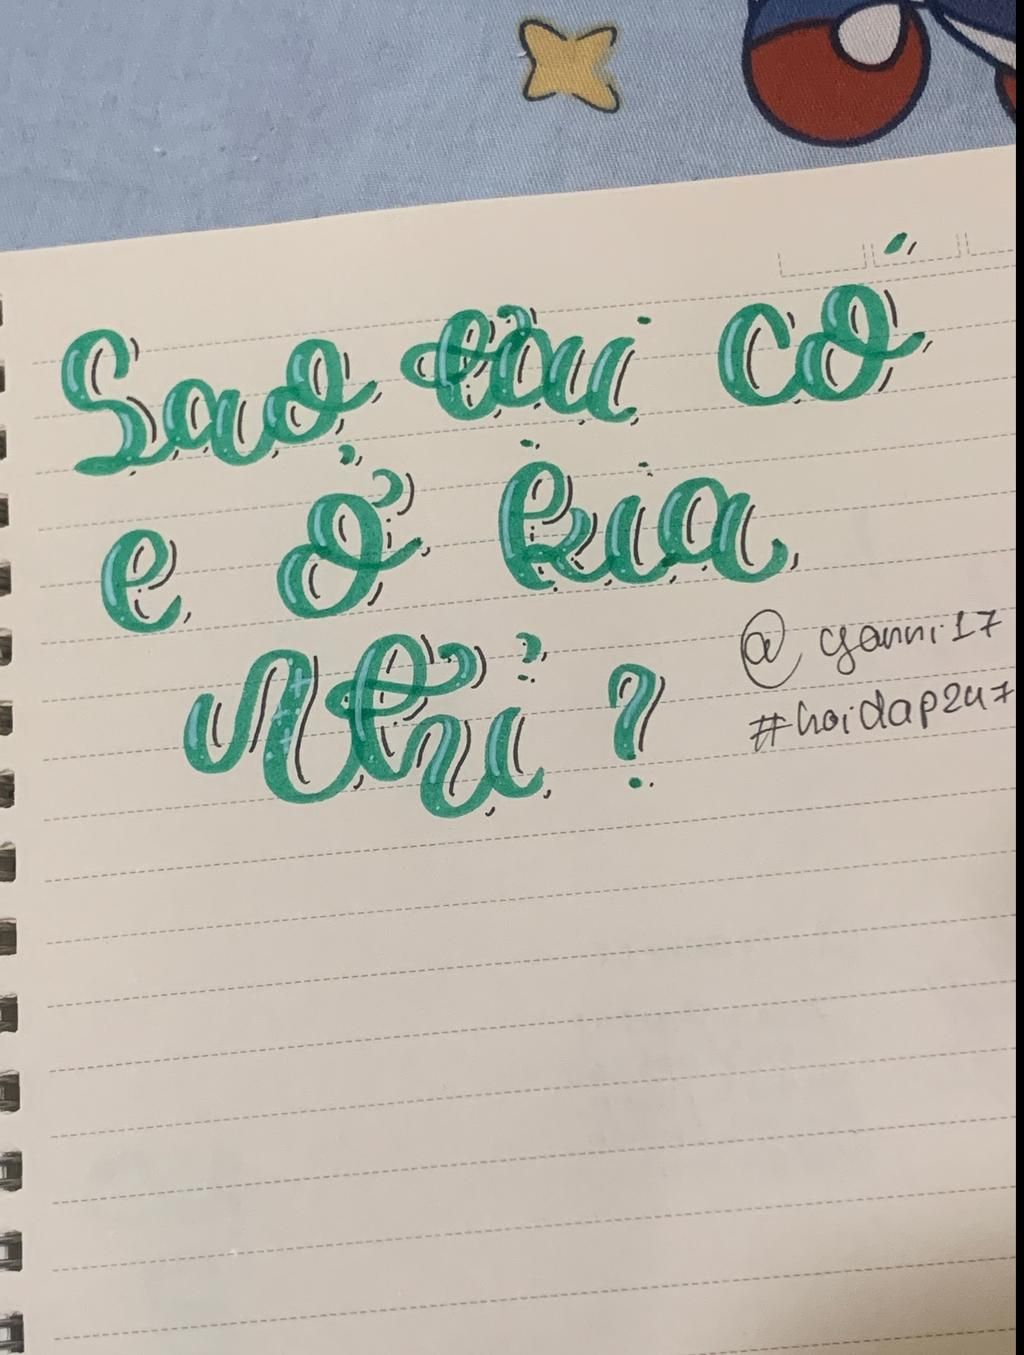 Sao tui có
e ở kia
Nhỉ ?
@yanni17
#hoidap247